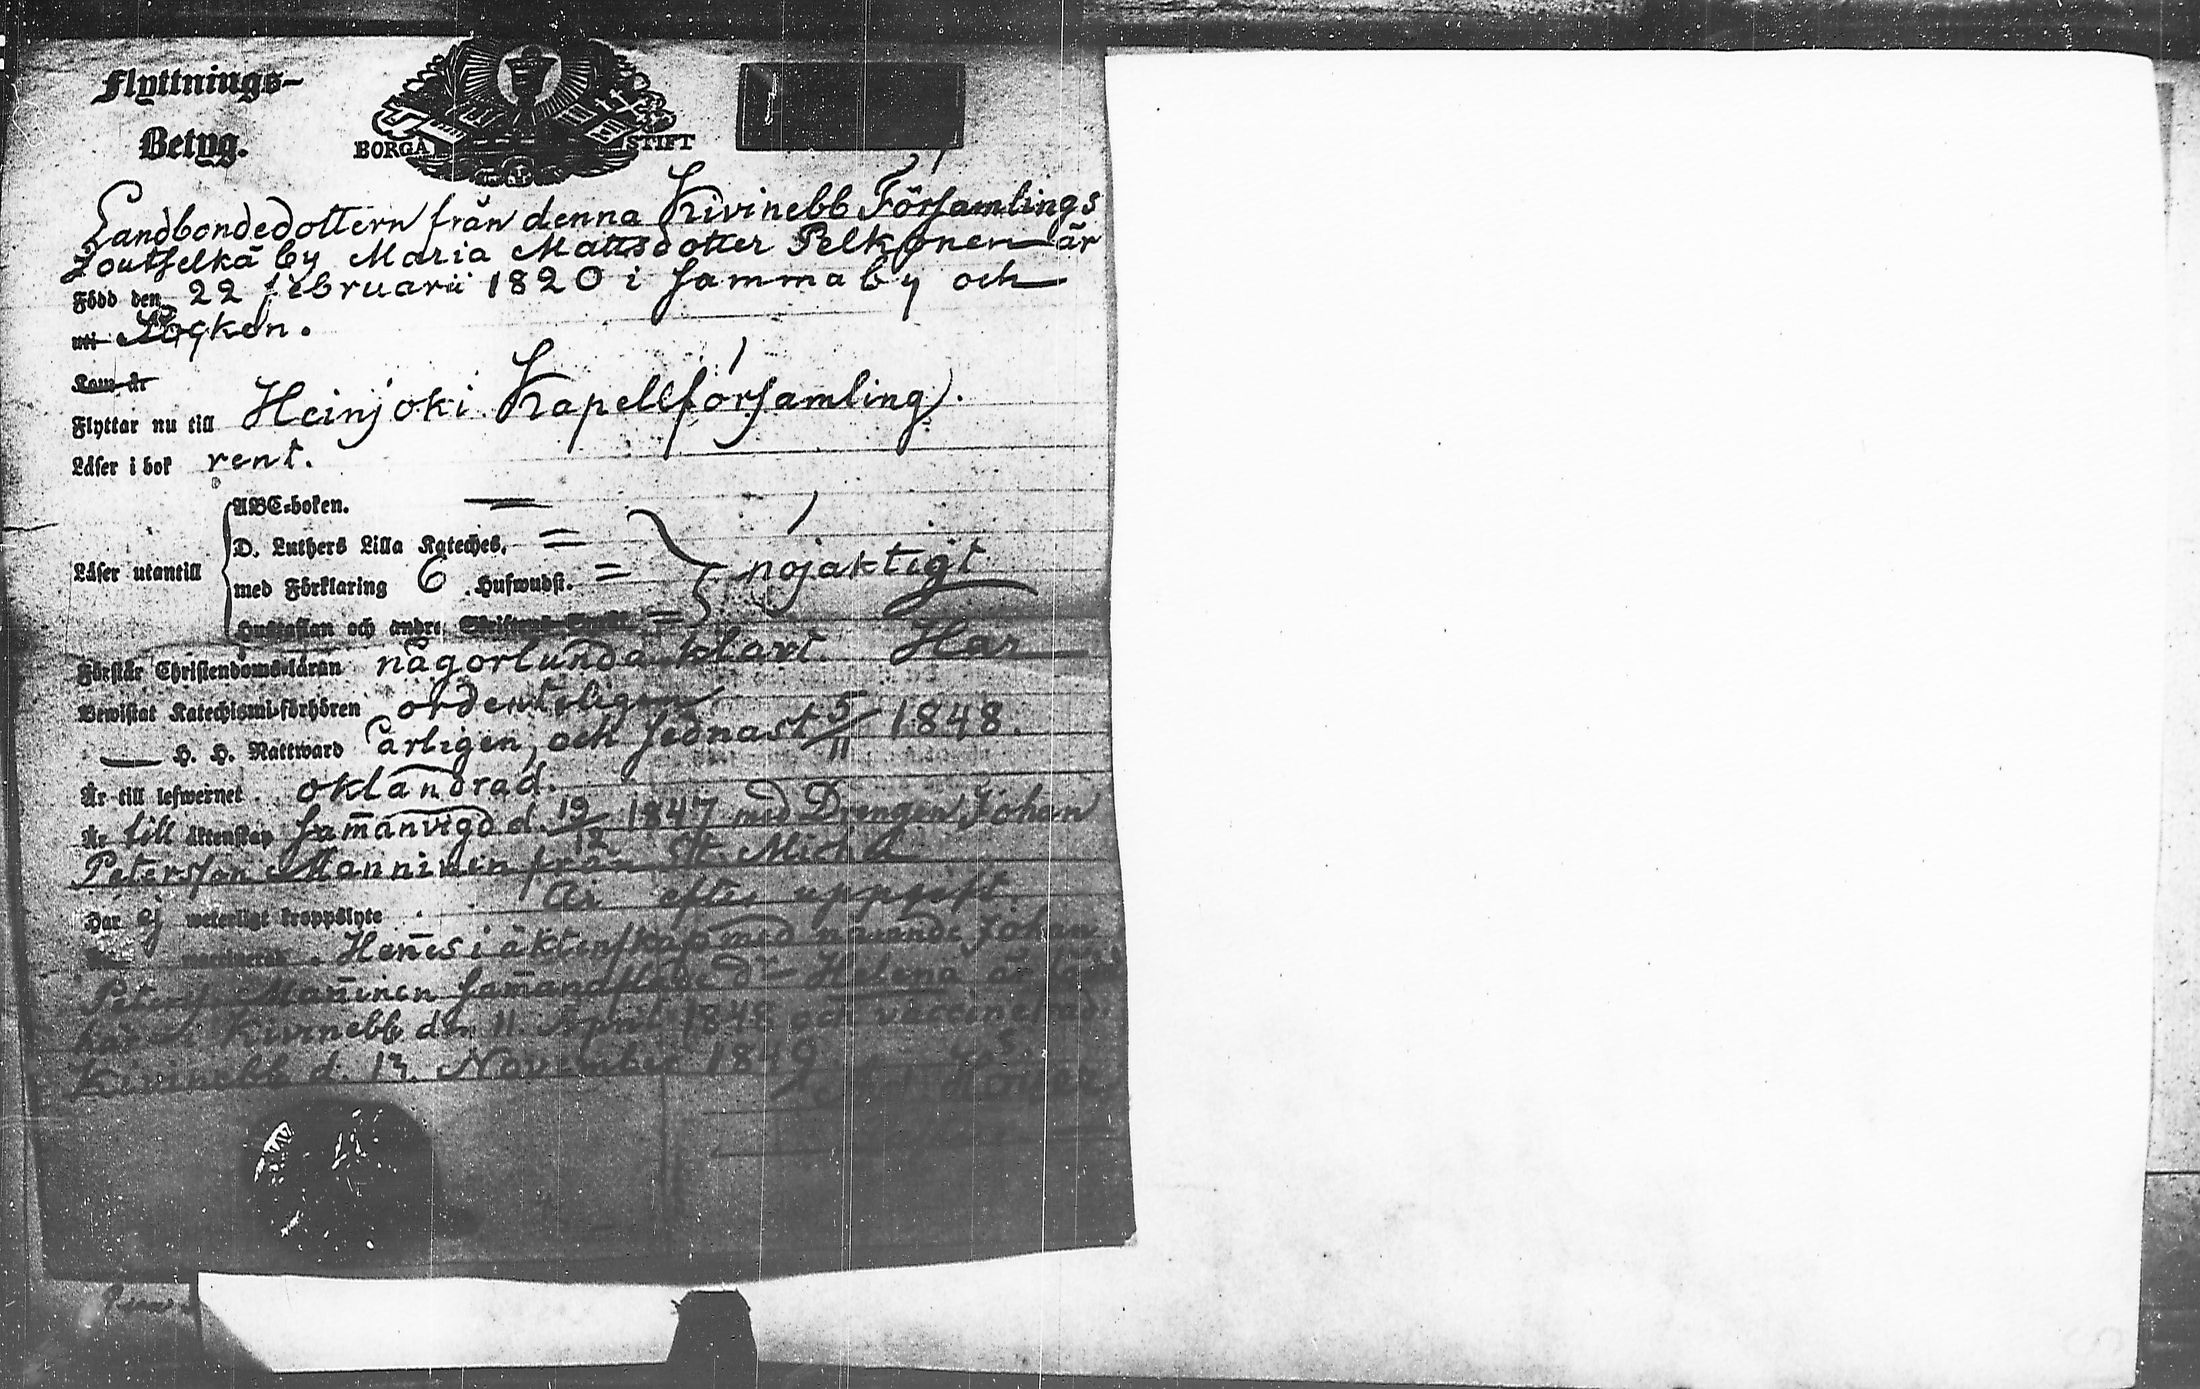 Flyttnings-
Betyg.
BORGÅ STIFT
Landbondedottern från denna Kivinebb Församlings
Joutselkä by Maria Mattsdotter Pelkonen är
Född den 22 februarii 1820 i samma by och
uti Socken.
Kom år
Flyttar nu till Heinjoki Kapellförsamling.
Läser i bok rent.
ABC-boken.
D. Luthers Lilla Kateches.
Läser utantill med Förklaring 6 Hufwudst. nöjaktigt
Hustaflan och andre
Förstår Christendoms-läran någorlunda klart. Har
Bewistat Katechismi-förhören ordenteligen
H. H. Nattward årligen, och sednast 5/11 1848.
Är till lefwernet oklandrad.
Är till äktenskap sam̄anvigd d. 19/12 1847 med Drengen Johan
Petersson Manninen från St. Mich
Har ej weterligt kroppslyte. Är efter uppgift
Hen̄es i äktenskap med näm̄nde Johan
Peterss. Man̄inen sam̄anaflade dr Helena är född
här i Kivinebb den 11. April 1848 och vaccinerad.
Kivinebb d. 17. November 1849